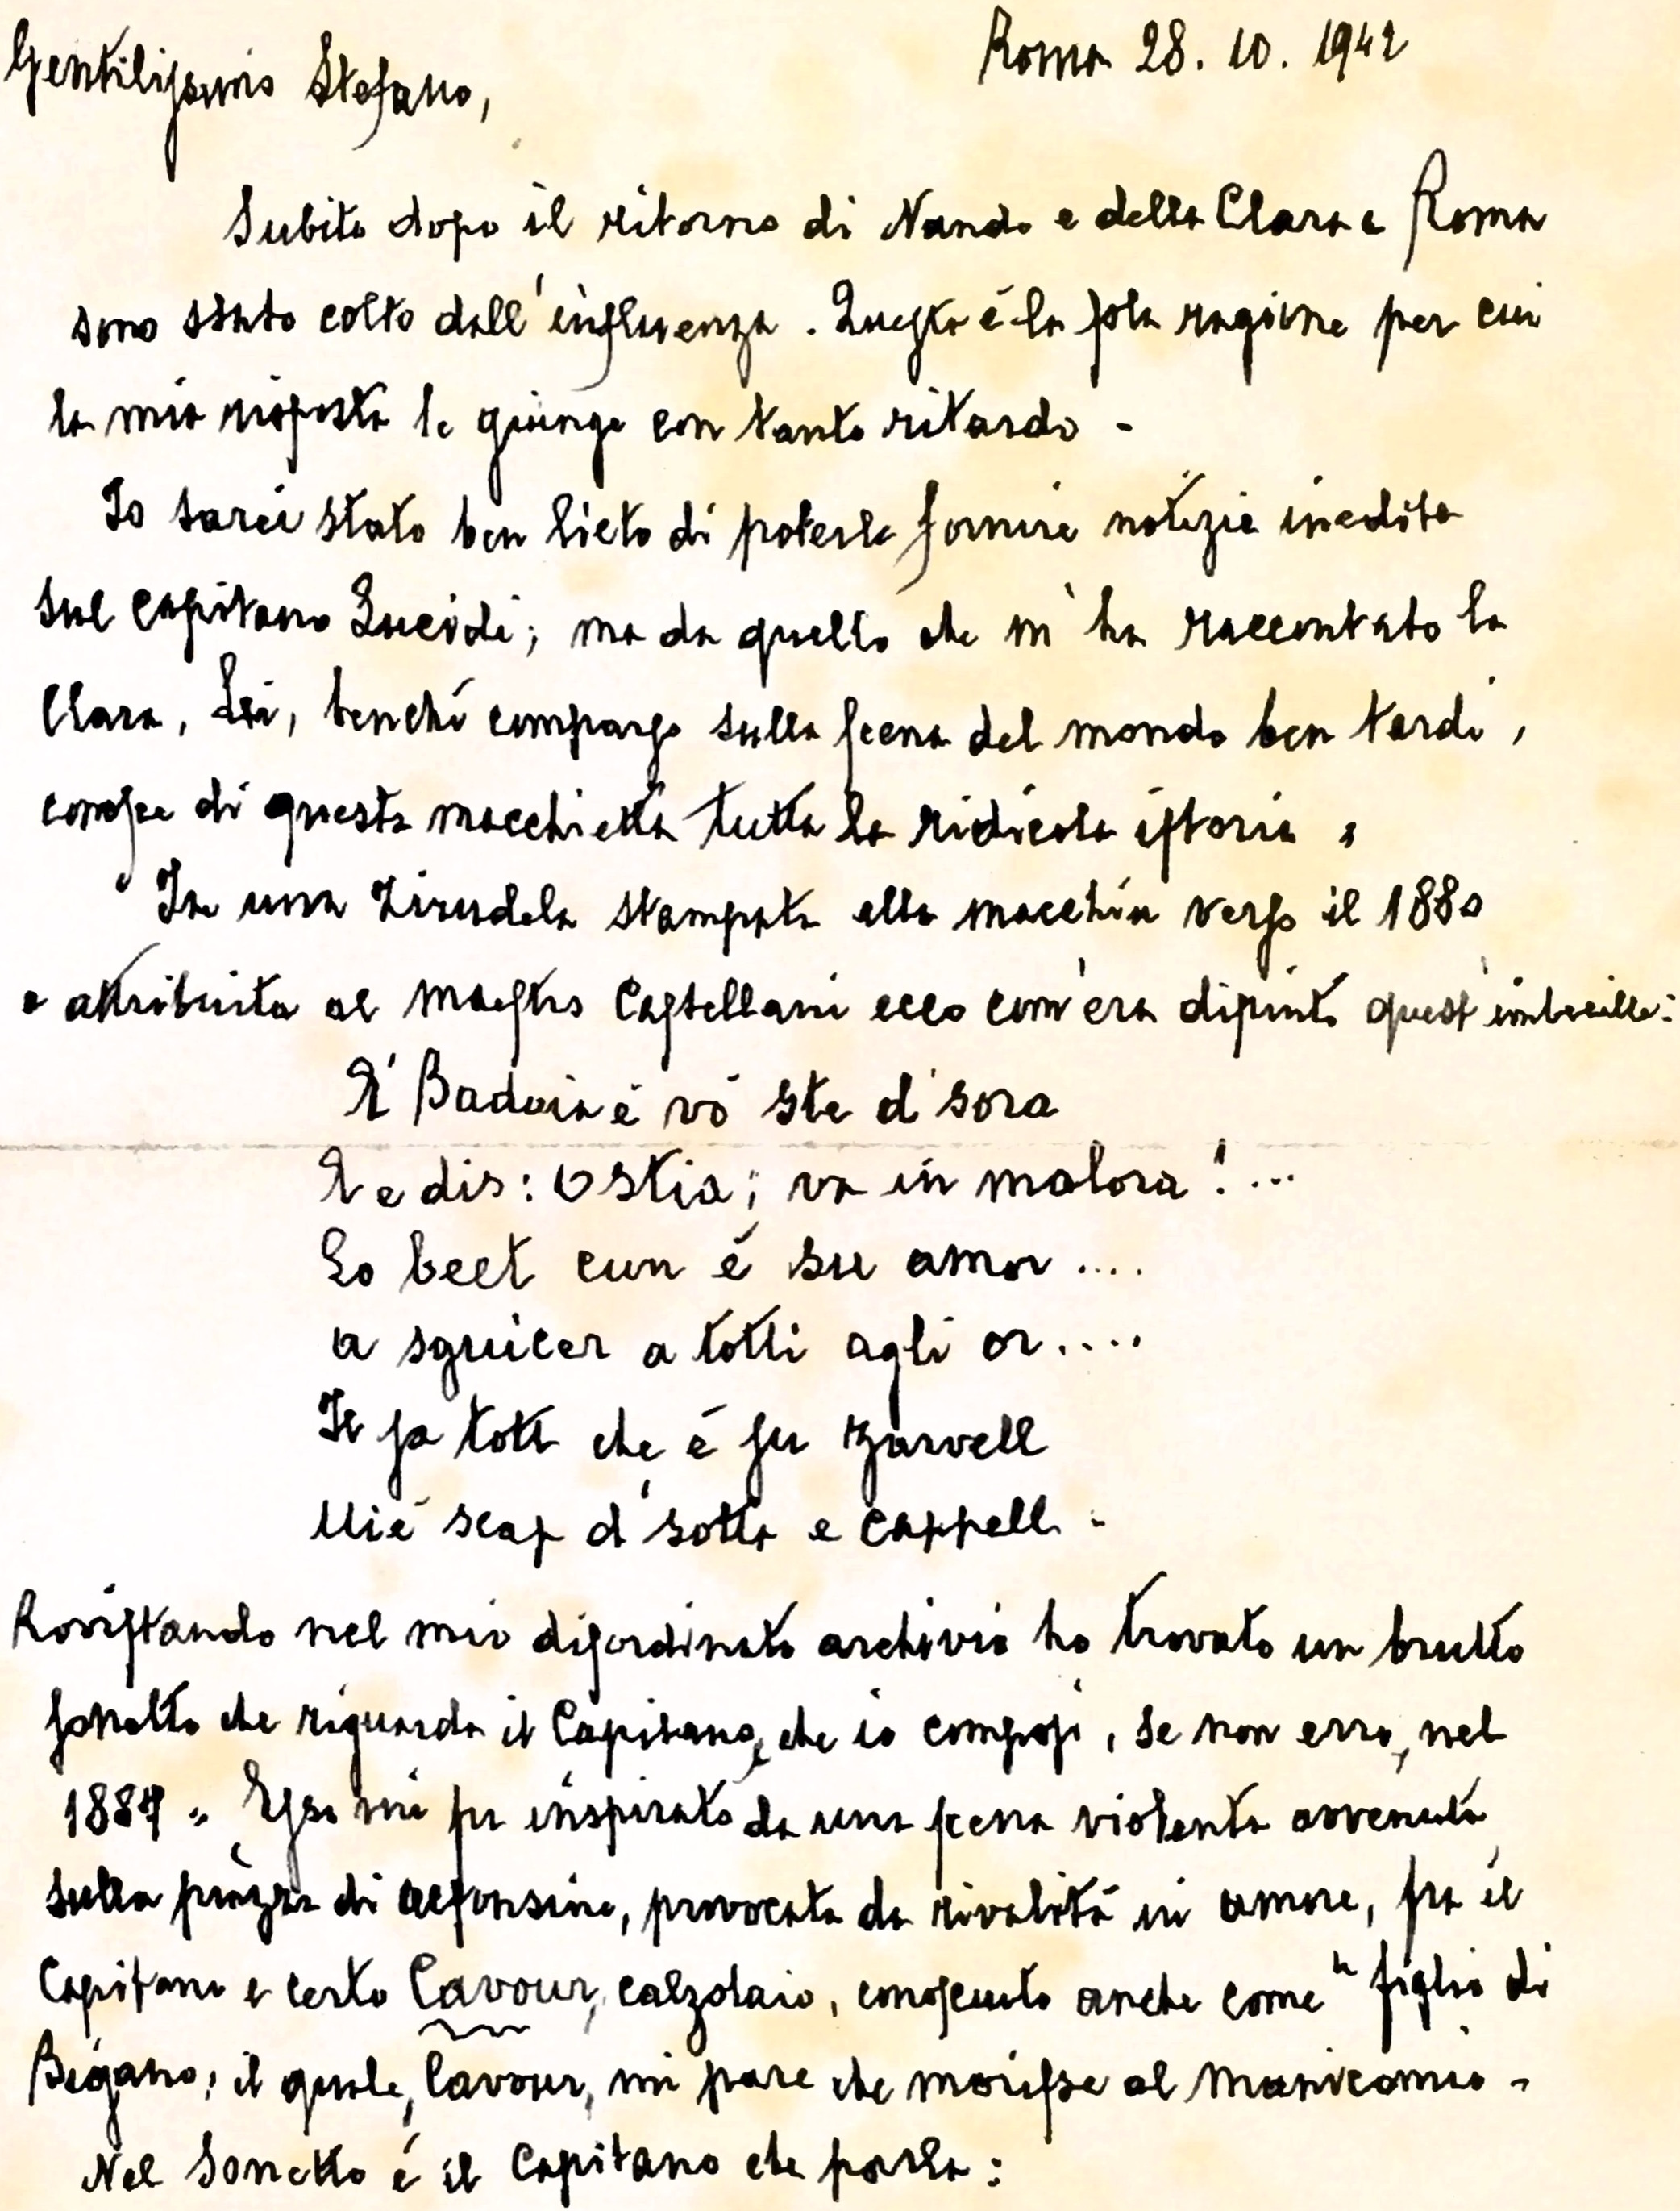 Roma 28. 10. 1942
Gentilissimo Stefano,
Subito dopo il ritorno di Nando e della Clara a Roma
sono stato colto dall'influenza. Questa è la sola ragione per cui
la mia risposta le giunge con tanto ritardo -
Io sarei stato ben lieto di poterle fornire notizie inedite
sul capitano Lucidi; ma da quello che m'ha raccontato la
Clara, Lei, benché comparso sulla scena del mondo ben tardi,
conosce di questa macchietta tutta la ridicola istoria.
In una Zirudela stampata alla macchia verso il 1880
e attribuita al maestro Castellani ecco com'era dipinto quest'imbecille:
E' Badoia é vó ste d'sora
E e dis: Ostia; va in malora!...
Lo beet cun é su amor....
a sguicer a totti agli or....
Te sa tott che é su zarvell
Uié scap d'sotta e cappell -
Rovistando nel mio disordinato archivio ho trovato un brutto
sonetto che riguarda il Capitano, e che io composi, se non erro, nel
1884. Esso mi fu inspirato da una scena violenta avvenuta
sulla piazza di Alfonsine, provocata da rivalità in amore, fra il
Capitano e certo Cavour, calzolaio, conosciuto anche come "figlio di
Begano; il quale, Cavour, mi pare che morisse al manicomio -
Nel sonetto é il Capitano che parla: